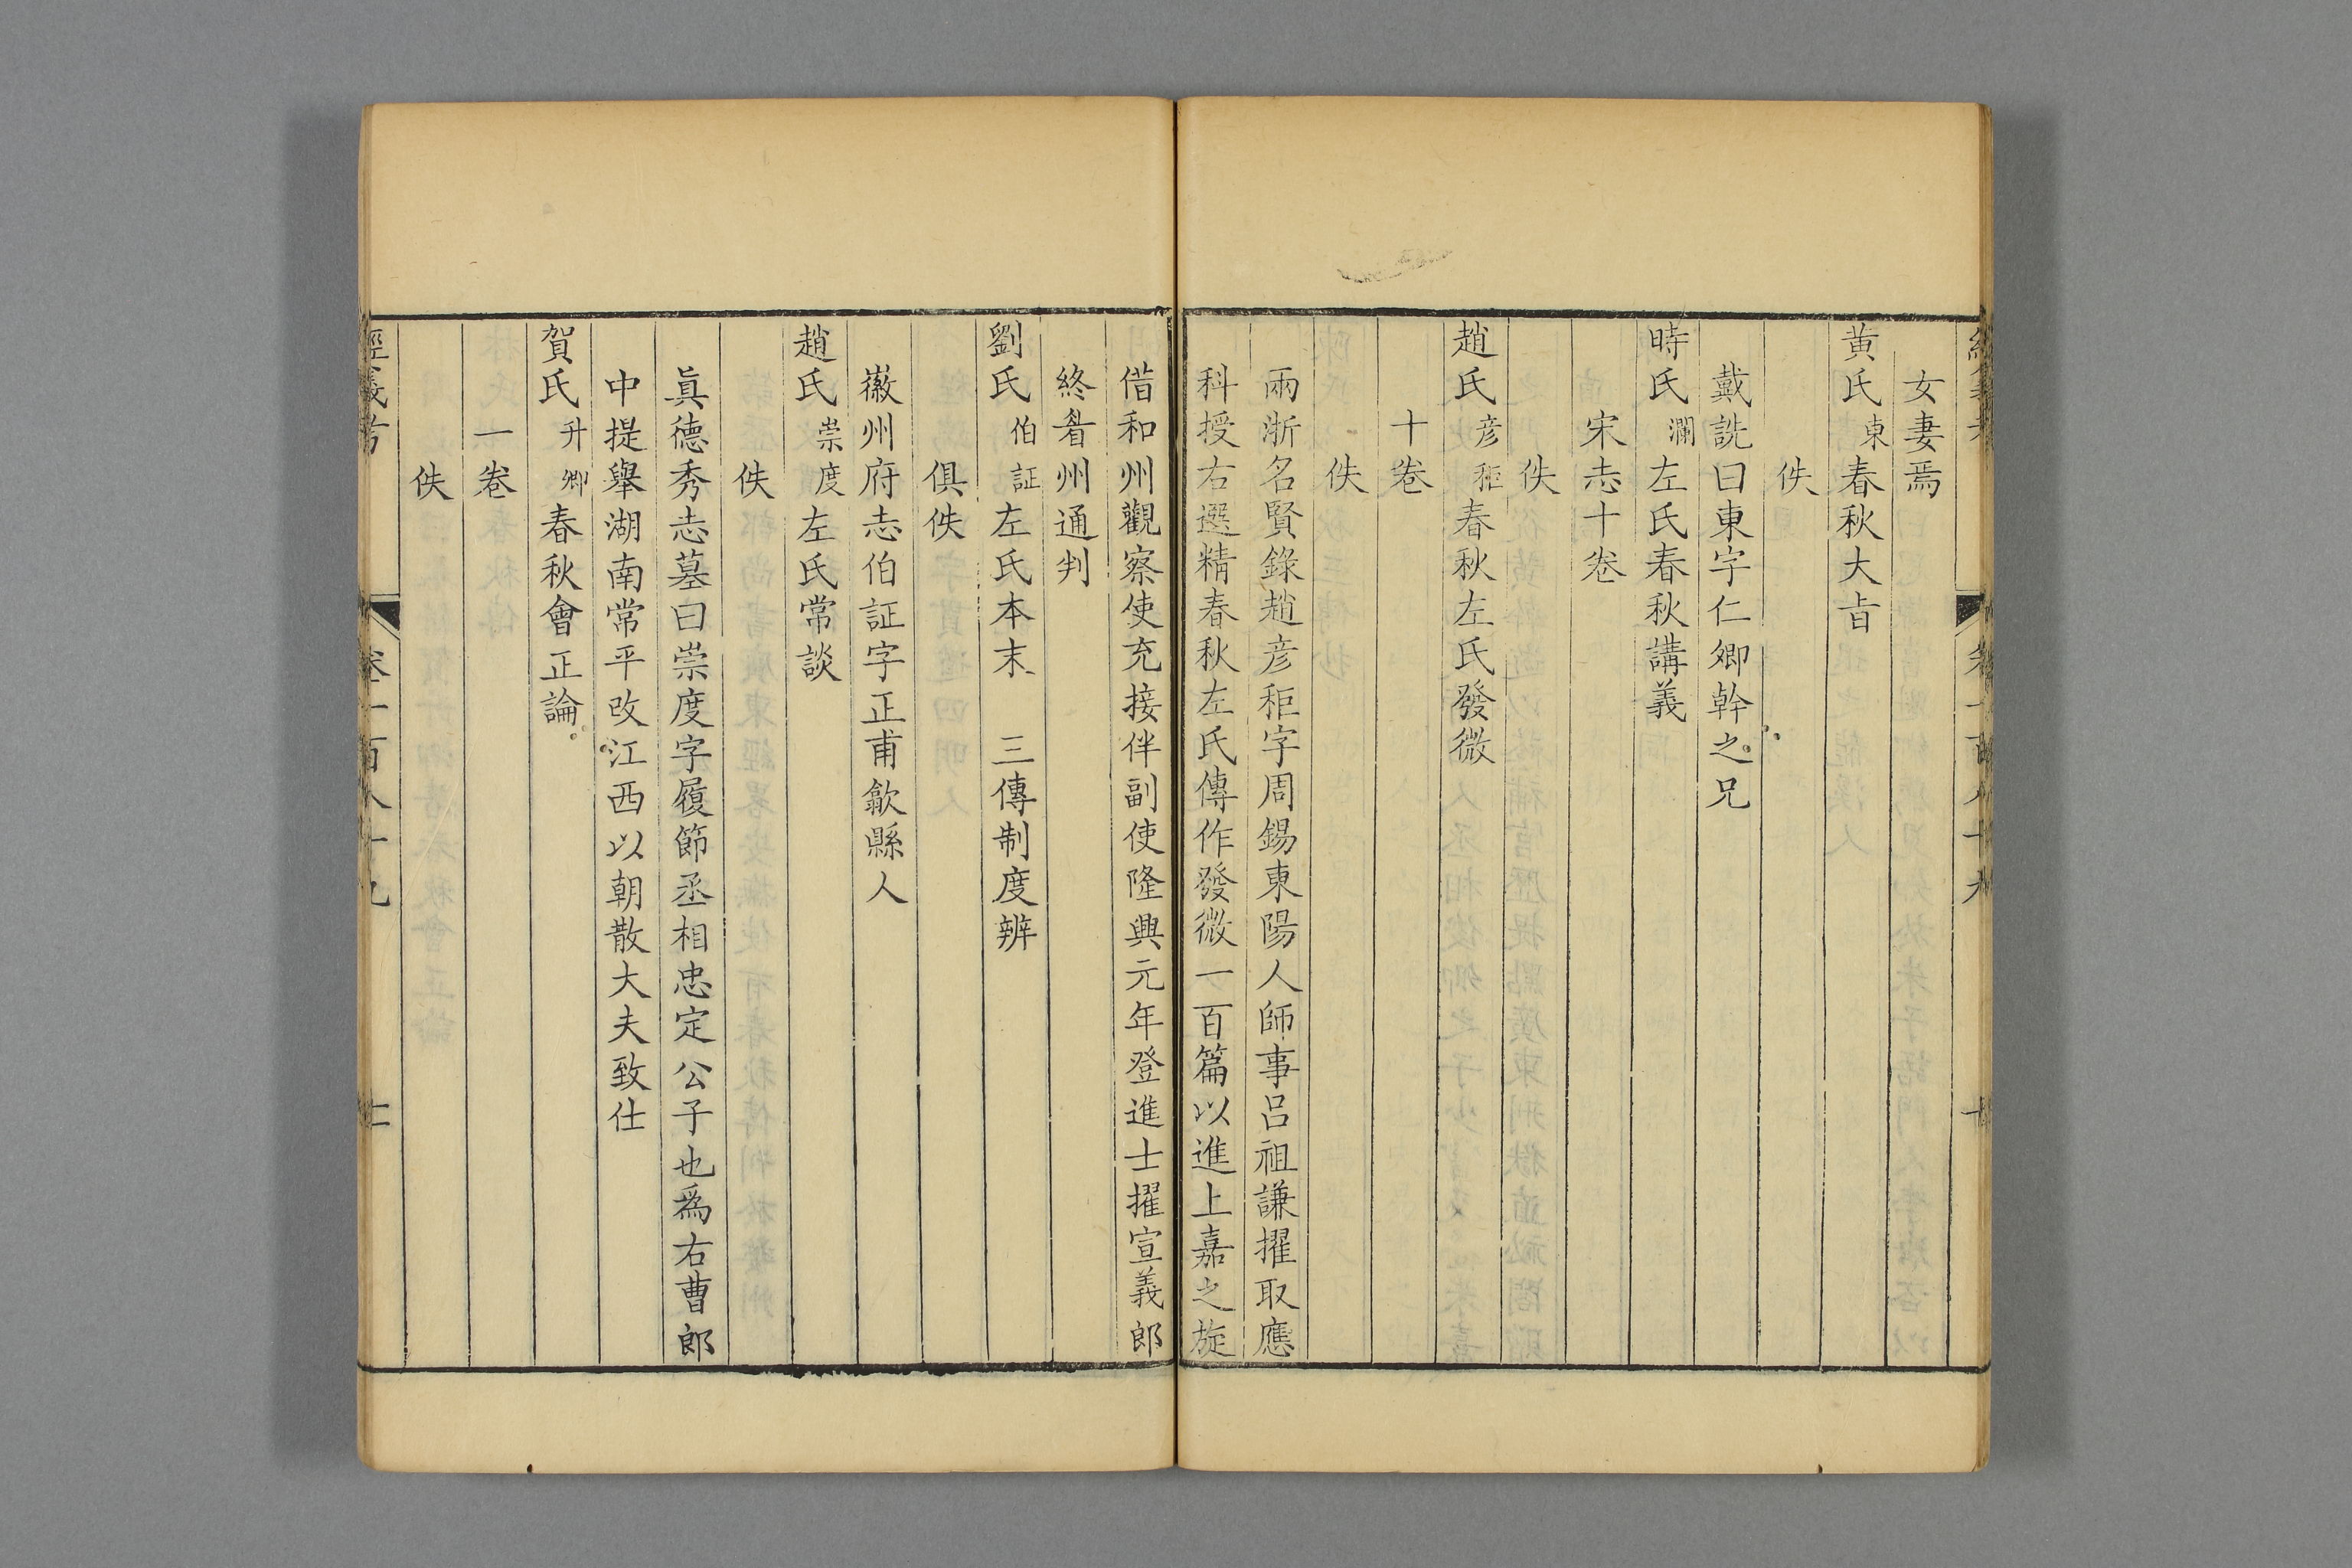 女妻焉
黃氏東春秋大㫖
佚
戴詵曰東字仁卿幹之兄
時氏瀾左氏春秋講義
宋志十卷
佚
趙氏彦秬春秋左氏發微
十卷
佚
兩浙名賢錄趙彦秬字周錫東陽人師事呂祖謙擢取應
科授右選精春秋左氏傳作發微一百篇以進上嘉之旋
借和州觀察使充接伴副使隆興元年登進士擢宣義郎
終眘州通判
劉氏伯証左氏本末 三傳制度辨
俱佚
徽州府志伯証字正甫歙縣人
趙氏崇度左氏常談
佚
眞德秀志墓曰崇度字履節丞相忠定公子也爲右曹郎
中提舉湖南常平改江西以朝散大夫致仕
賀氏升卿春秋會正論
一卷
佚
經義考 卷一百八十九